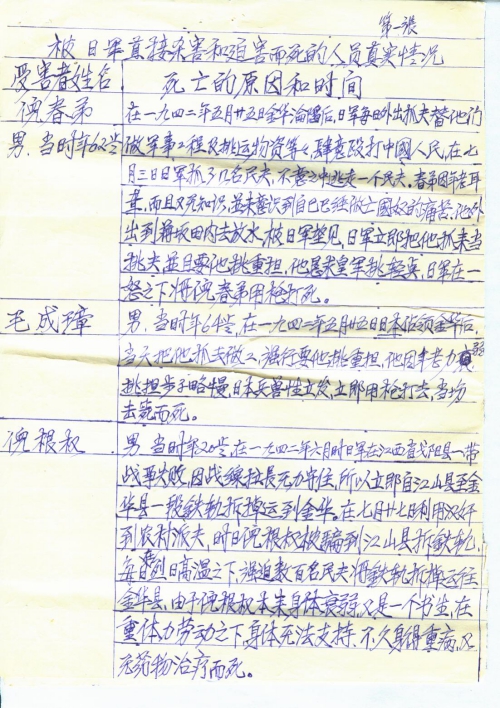 第一張
被日军直接杀害和迫害而死的人员真实情况
受害者姓名
死亡的原因和时间
倪春弟
男,当时年62岁
在一九四二年五月廿五日金华沦陷后,日军每日外出抓夫替他们
做军事工程及挑运物资等,肆意毆打中國人民,在七
月三日日军抓3几名民夫,不意之中逃走一个民夫。春弟因年老耳
聋,而且又无知识,並未意识到自己已经做亡國奴的痛苦,他外
出到 田内去放水,被日军望见,日军立即把他抓来当
挑夫並且要他挑重担,他恳求皇军挑轻些,日军在一
怒之下将倪春弟用枪打死。
毛成璋
男,当时年64岁,在一九四二年五月廿五日日本佔领金华后,
当天把他抓去做工,强行要他挑重担,他因年老力弱
挑担步子略慢,日本兵兽性立发,立即用枪打去,当场
去 而死。
倪根权
男,当时年20岁,在一九四二年六月时日军在江西省弋阳县一带
战事失败,因战線拉長无力守住,所以立即自江山县至金
华县一段鉄轨拆掉运到金华。在七月廿七日利用汉奸
到农村派夫,明日倪根权被騙到江山县拆鉄轨,
每日烈日高温之下,强迫数百名民夫将鉄轨拆掉运往
金华县,由于倪根权本来身体衰弱,又是一个书生,在
重体力劳动之下身体无法支持,不久身得重病,又
无药物治疗而死。